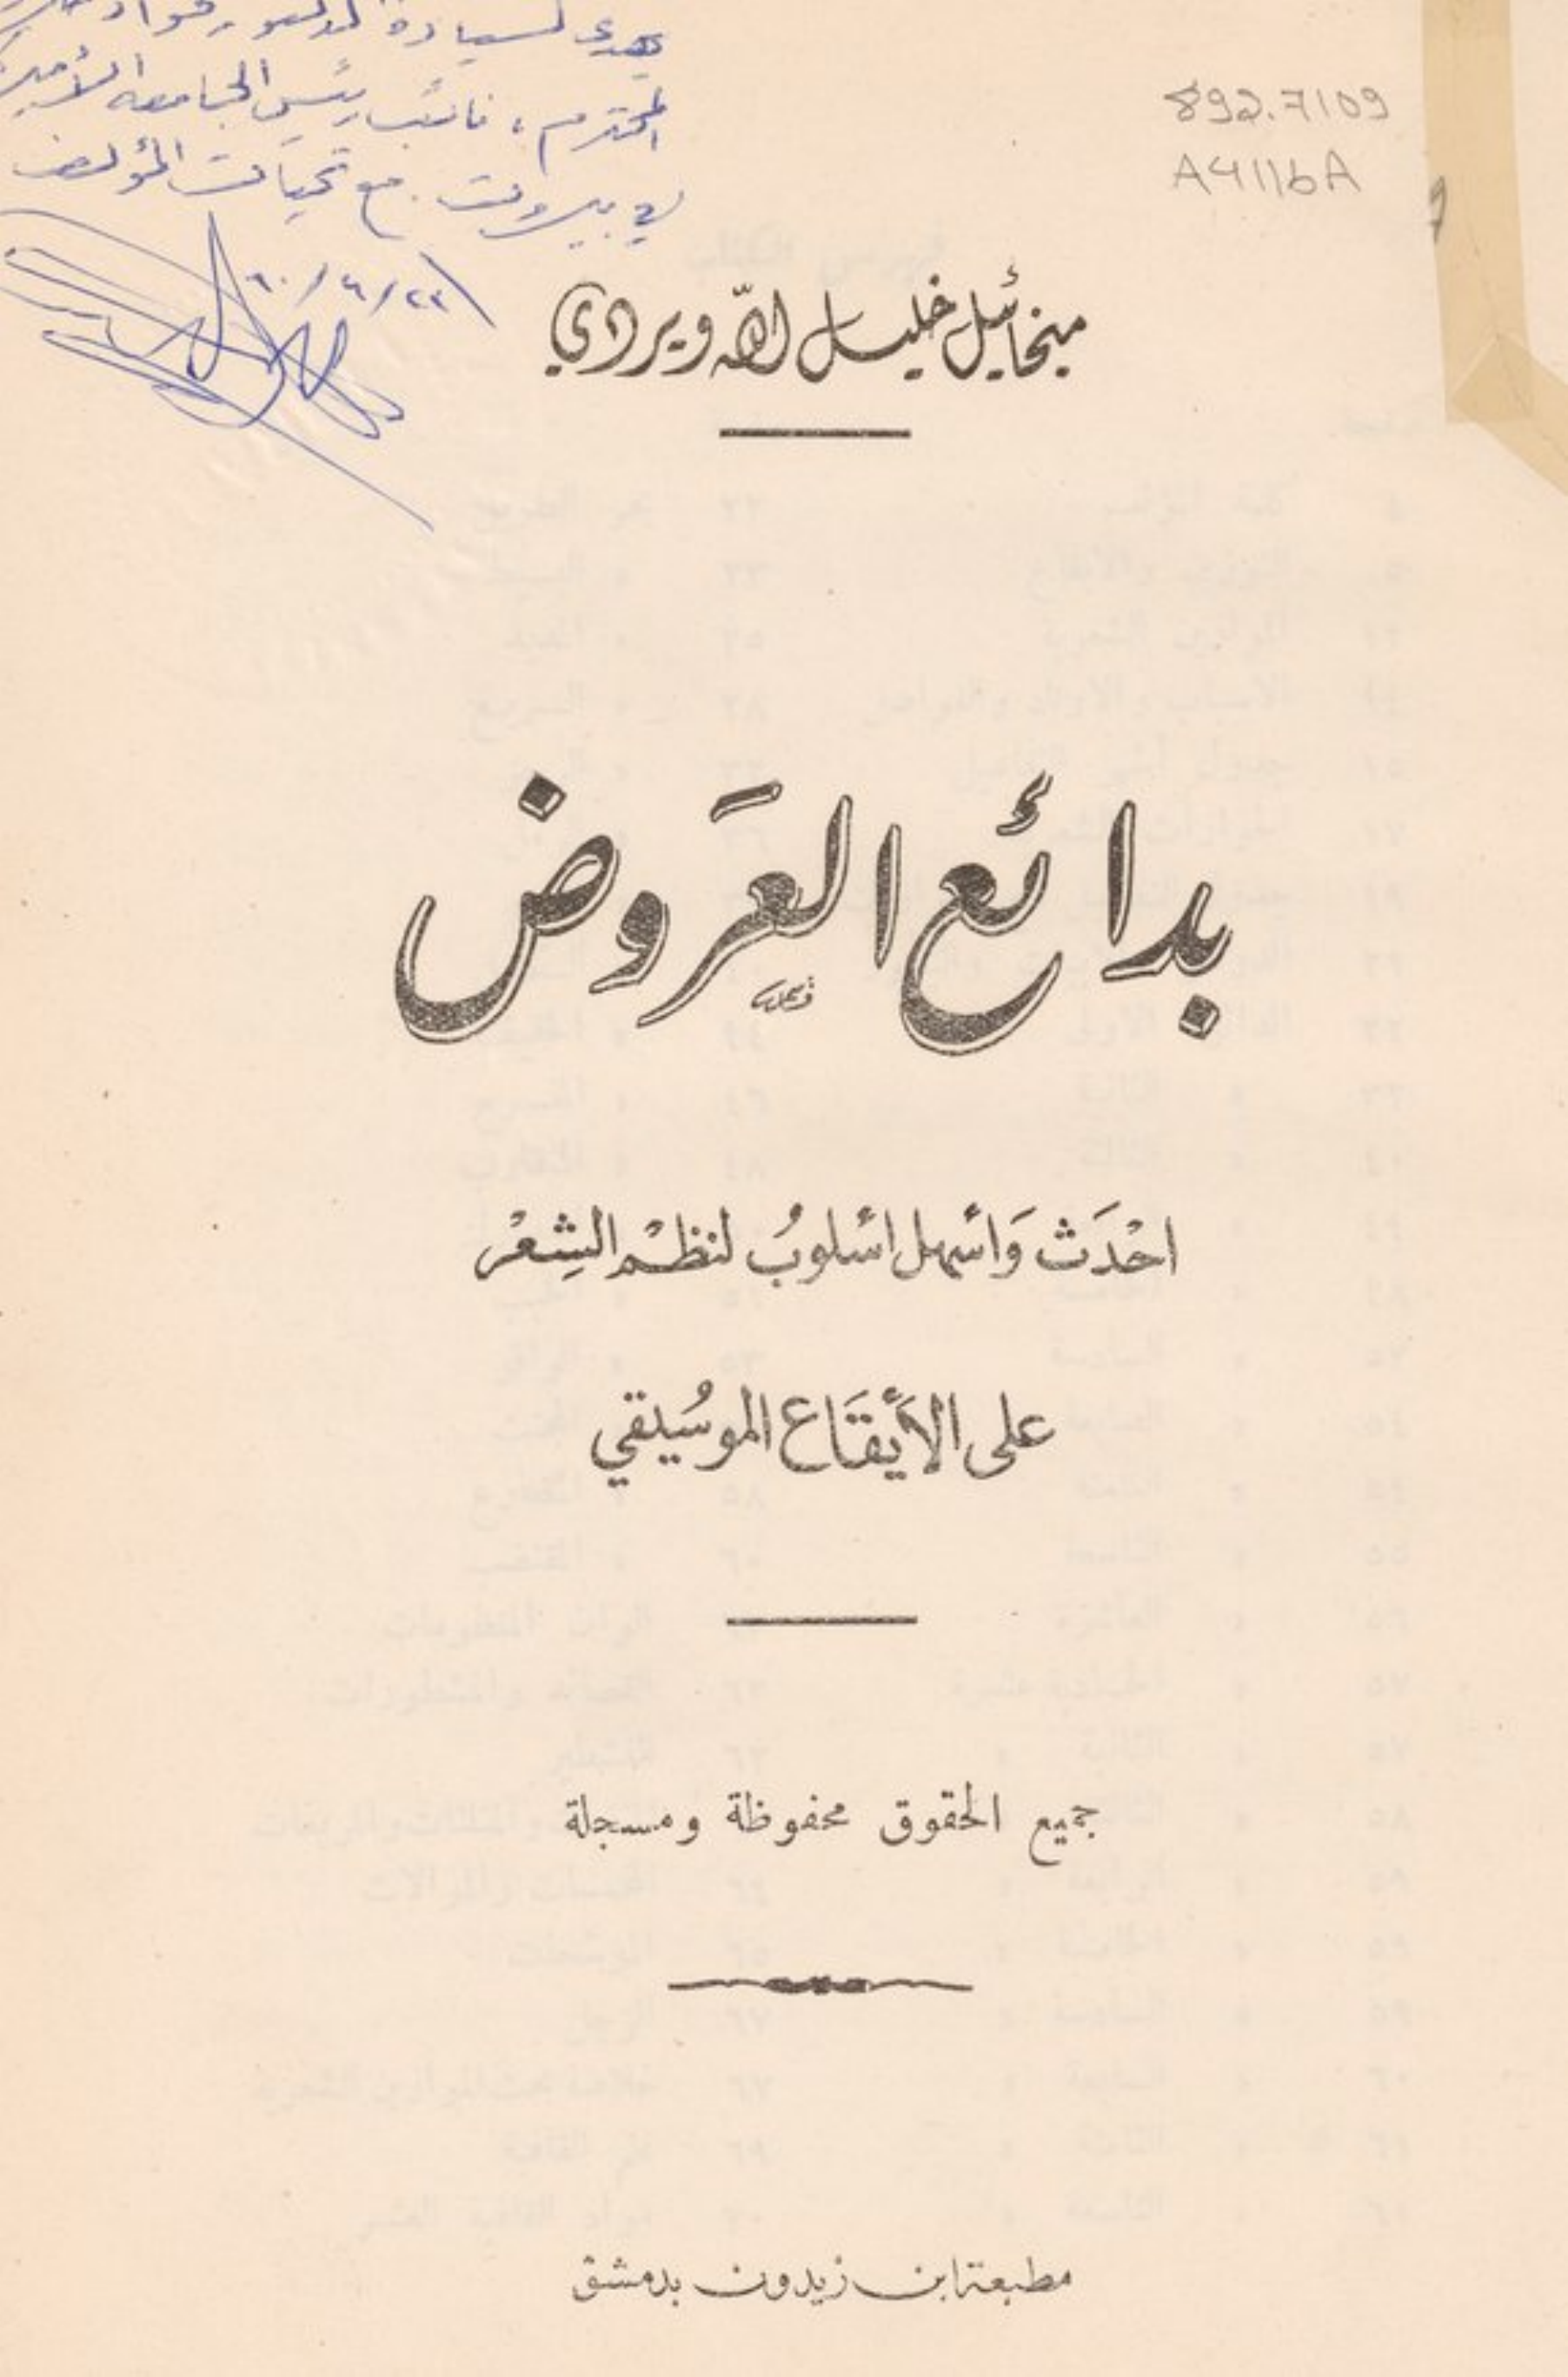 لسيادة الدكتور فؤاد
المحترم، نائب رئيس الجامعة الأميركية
في بيروت. مع تحيات المؤلف
892.7109
A411bA
ميخائيل خليل الله ويردي
بدائع العَروض
احْدَث وَأسهل اسْلوبُ لنظمْ الشِعْر
على الأيقَاع الموسُيقي
جميع الحقوق محفوظة ومسجلة
مطبعة ابن زيدون بدمشق